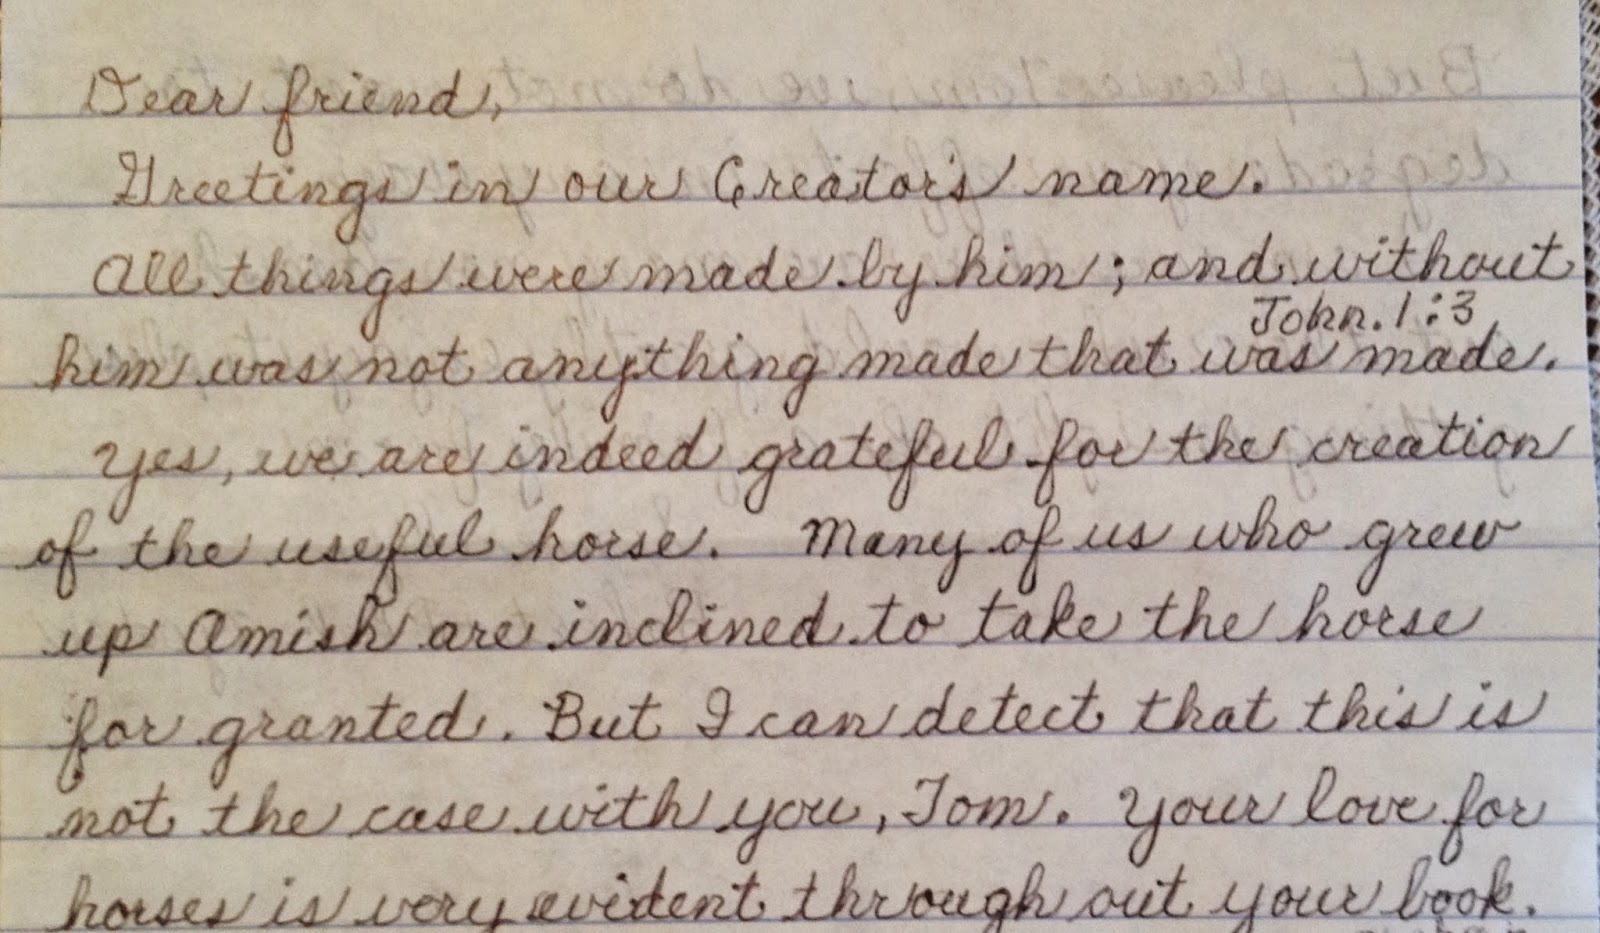 Dear friend,
Greetings in our Creator's name.
All things were made by him; and without
John. 1:3
him was not anything made that was made.
Yes, we are indeed grateful for the creation
of the useful horse. Many of us who grew
up Amish are inclined to take the horse
for granted. But I can detect that this is
not the case with you, Tom. Your love for
horses is very evident through out your book.